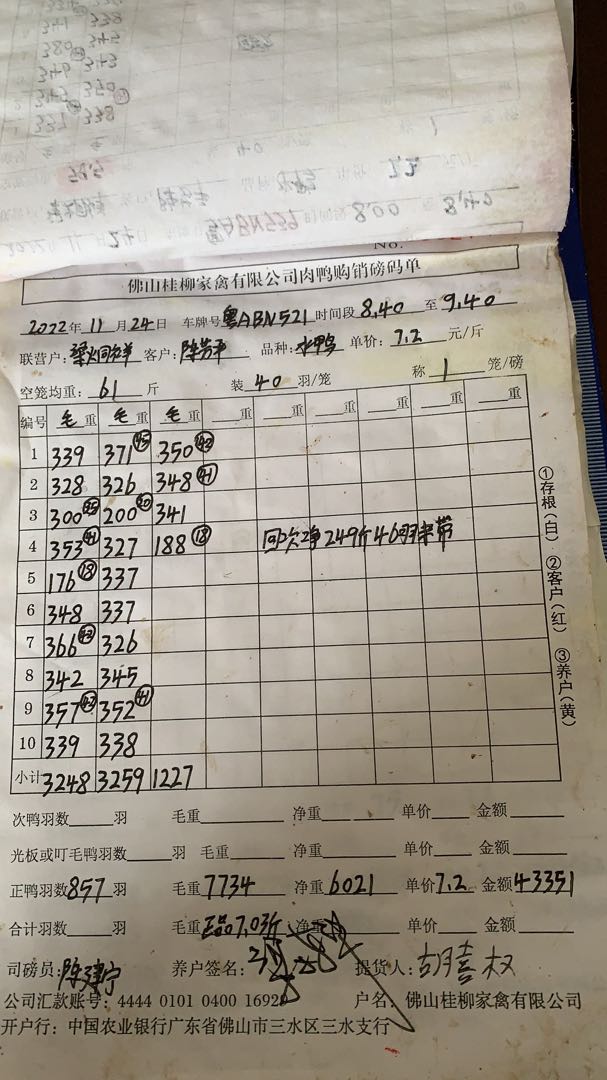 No.
佛山桂柳家禽有限公司肉鸭购销磅码单
2022年 11月 24日 车牌号 粤ABN521 时间段 8.40 至 9.40
联营户: 客户: 陈芳平 品种: 水鸭 单价: 7.2 元/斤
空笼均重: 61 斤 装 40 羽/笼 称 1 笼/磅
编号 毛重 毛重 毛重 重 重 重 重
1 339 371 45 350 42
2 328 326 348 41
3 300 35 200 20 341
4 353 41 327 188 18 249斤46羽
5 176 18 337
6 348 337
7 366 42 326
8 342 345
9 357 42 352 41
10 339 338
小计 3248 3259 1227
①存根(白) ②客户(红) ③养户(黄)
次鸭羽数 羽 毛重 净重 单价 金额
光板或叮毛鸭羽数 羽 毛重 净重 单价 金额
正鸭羽数 857 羽 毛重 7734 净重 6021 单价 7.2 金额 43351
合计羽数 羽 毛重 正品7.03斤 净重 单价 金额
司磅员: 陈建宁 养户签名: 提货人: 胡喜权
公司汇款账号: 4444 0101 0400 1692 户名: 佛山桂柳家禽有限公司
开户行: 中国农业银行广东省佛山市三水区三水支行